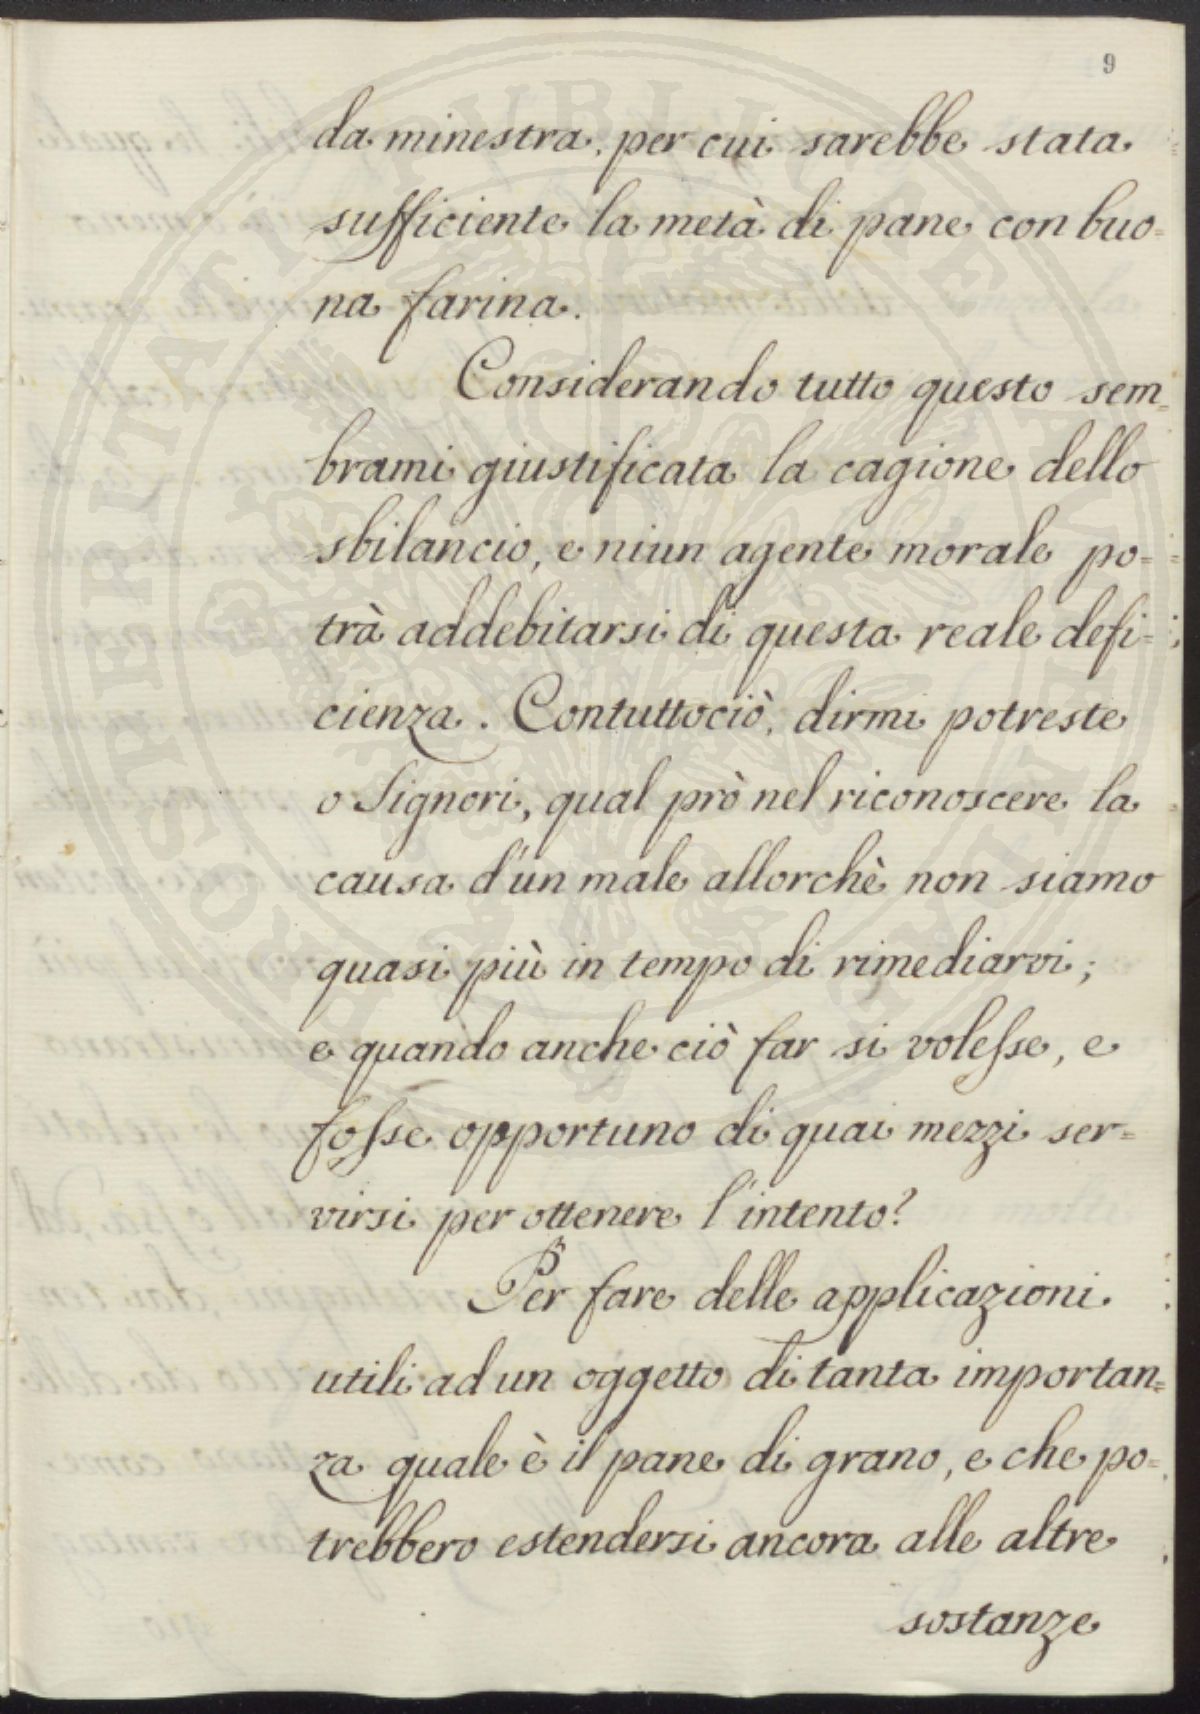 9
da minestra, per cui sarebbe stata
sufficiente la metà di pane con buo=
na farina.
Considerando tutto questo sem=
brami giustificata la cagione dello
sbilancio, e niun agente morale po=
trà addebitarsi di questa reale defi=
cienza. Contuttociò, dirmi potreste
o Signori, qual prò nel riconoscere la
causa d'un male allorchè non siamo
quasi più in tempo di rimediarvi;
e quando anche ciò far si volesse, e
fosse opportuno di quai mezzi ser=
virsi per ottenere l'intento?
Per fare delle applicazioni
utili ad un oggetto di tanta importan=
za quale è il pane di grano, e che po=
trebbero estendersi ancora alle altre
sostanze
PROSPERITATI PUBLICAE AUGENDAE